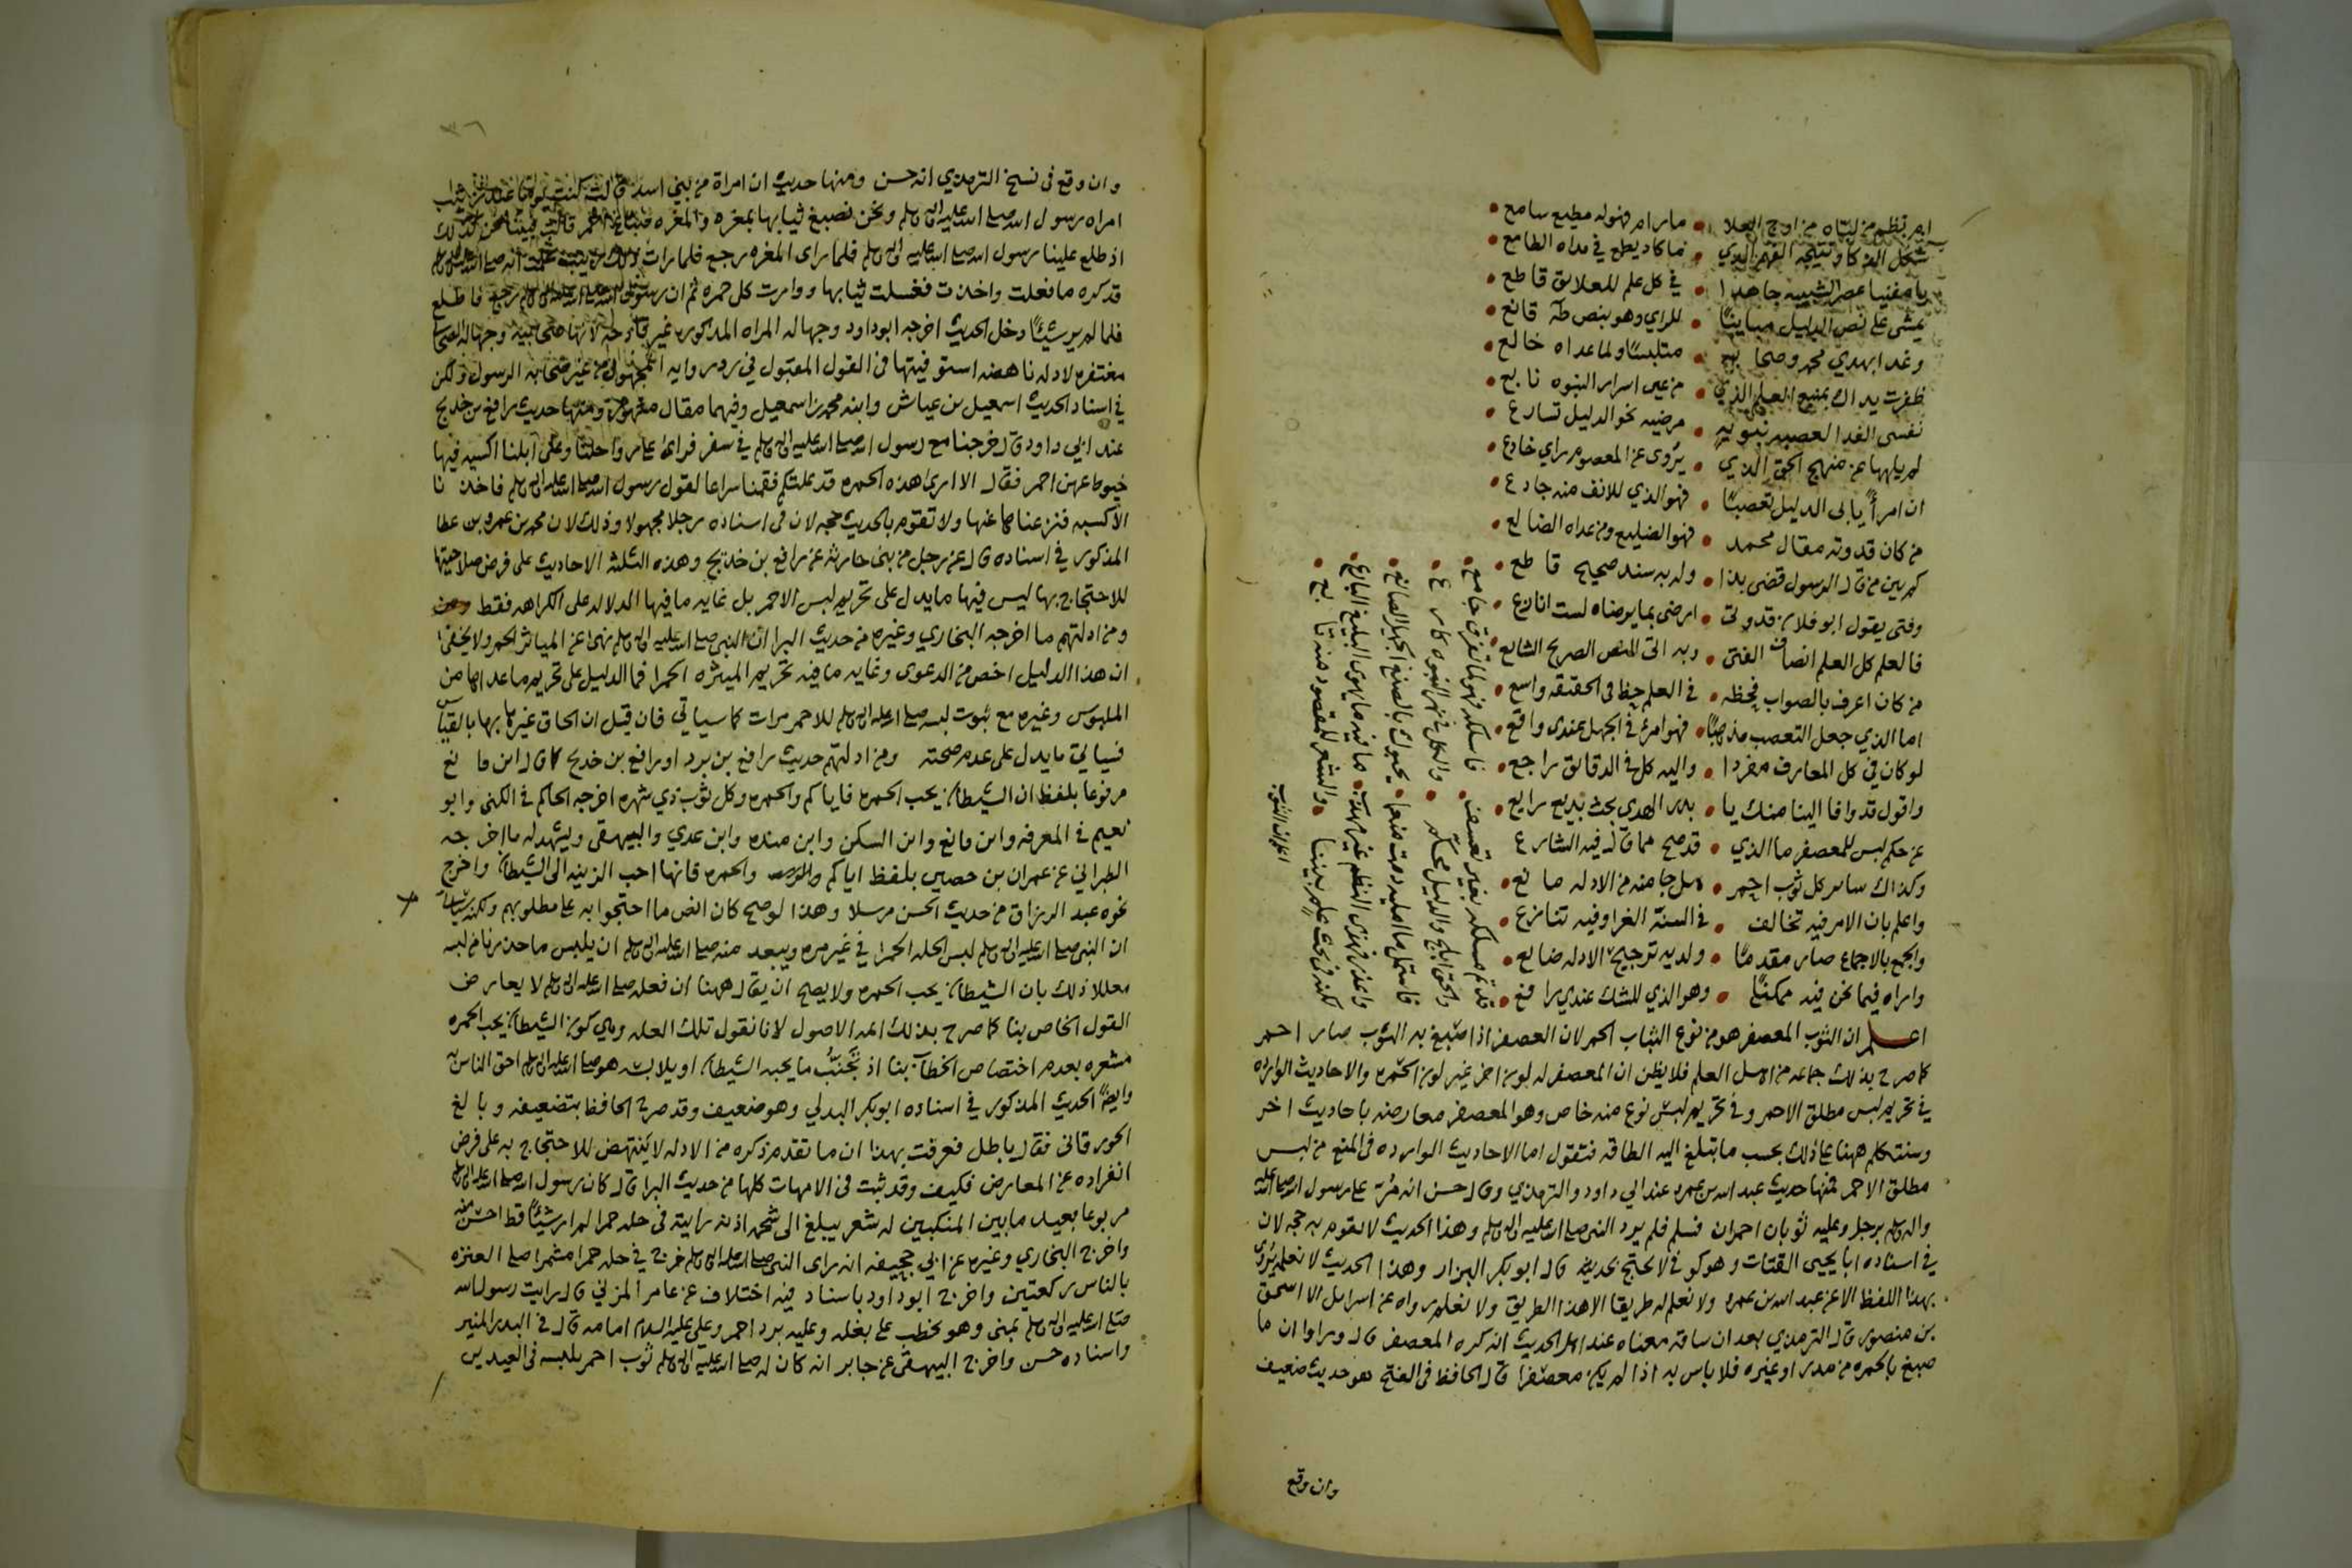 ما رام فهو له مطيع سامع
فما كاد يطمع في مداه الطامع
في كل علم للعلائق قاطع
يمشي على نص الدليل مباينًا • للراي وهو بنص طه قانع
وغدا بهدي محمد وصحابه • متلبسًا ولما عداه خالع
ظفرت يداك بمنبع العلم الذي • من عين اسرار النبوه نابع
نفسي الفدا لعصبه نبويه • مرضيه نحو الدليل تسارع
لم يلهها عن منهج الحق الذي • يروى عن المعصوم راي خادع
ان امرأ يابى الدليل تعصبًا • فهو الذي للانف منه جادع
من كان قدوته مقال محمد • فهو الضليع ومن عداه الضالع
كم بين من قال الرسول قضى بذا • وله به سند صحيح قاطع
وفتى يقول ابو فلان قدوتي • ارضى بما يرضاه لست انازع
فالعلم كل العلم انصاف الفتى • وبه اتى النص الصريح الشايع
من كان اعرف بالصواب فحظه • في العلم حظ في الحقيقه واسع
اما الذي جعل التعصب مذهبًا • فهو امرء في الجهل عندي واقع
لو كان في كل المعارف مفردا • واليه كل في الدقائق راجع
واقول قد وافا الينا منك يا • بدر الهدى بحث بديع رايع
عن حكم لبس للمعصفر ما الذي • قد صح مما قال فيه الشارع
وكذاك ساير كل ثوب احمر • هل جا منه من الادله مانع
واعلم بان الامر فيه تخالف • في السنة الغرا وفيه تنازع
والجمع بالاجماع صار مقدمًا • ولديه ترجيح الادله ضايع
واراه فيما نحن فيه ممكنًا • وهو الذي للشك عندي رافع
فاسلكه فهو لما تفرق جامع
والحق ابلج والدليل محكم
واعذر فهذي النظم غير مهذب • ما فيه ما يهوى البليغ البارع
لكنه في بحث علم بيننا • والشعر للمقصود منه تابع
اعلم ان الثوب المعصفر هو من نوع الثياب الحمر لان العصفر اذا صبغ به الثوب صار احمر
كما صرح بذلك جماعه من اهل العلم فلا يظن ان المعصفر له لون اخر غير لون الحمره والاحاديث الوارده
في تحريم لبس مطلق الاحمر وفي تحريم لبس نوع منه خاص وهو المعصفر معارضه باحاديث اخر
وسنتكلم ههنا على ذلك بحسب ما تبلغ اليه الطاقه فنقول اما الاحاديث الوارده في المنع من لبس
مطلق الاحمر فمنها حديث عبد الله بن عمرو عند ابي داود والترمذي وقال حسن انه مر على رسول الله صلى الله عليه
واله وسلم رجل وعليه ثوبان احمران فسلم فلم يرد النبي صلى الله عليه واله وسلم وهذا الحديث لا تقوم به حجه لان
في اسناده ابا يحيى القتات وهو كوفي لا يحتج بحديثه قال ابو بكر البزار وهذا الحديث لا نعلمه يروى
بهذا اللفظ الا عن عبد الله بن عمرو ولا نعلم له طريقا الا هذا الطريق ولا نعلم رواه عن اسرائل الا اسحق
بن منصور قال الترمذي بعد ان ساقه معناه عند اهل الحديث انه كره المعصفر قال وراوا ان ما
صبغ بالحمره من مدر او غيره فلا باس به اذا لم يكن معصفرا قال الحافظ في الفتح هو حديث ضعيف
وان وقع
٣٦
وان وقع في نسخ الترمذي انه حسن ومنها حديث ان امراة من بني اسد قالت كنت يوما عند زينب
امراه رسول الله صلى الله عليه واله وسلم ونحن نصبغ ثيابها بمغره والمغره صباغ احمر قالت فبينا نحن كذلك
اذ طلع علينا رسول الله صلى الله عليه واله وسلم فلما راى المغره رجع فلما رات ذلك زينب علمت انه صلى الله عليه واله وسلم
قد كره ما فعلت واخذت فغسلت ثيابها ووارت كل حمره ثم ان رسول الله صلى الله عليه واله وسلم رجع فاطلع
فلما لم ير شيئًا دخل الحديث اخرجه ابو داود وجهاله المراه المذكوره غير قادحه لانها صحابيه وجهاله الصحابي
مغتفره لادله ناهضه استوفيتها في القول المقبول في رد روايه المجهول من غير صحابه الرسول ولكن
في اسناد الحديث اسمعيل بن عياش وابنه محمد بن اسمعيل وفيهما مقال مشهور ومنها حديث رافع بن خديج
عند ابي داود قال خرجنا مع رسول الله صلى الله عليه واله وسلم في سفر فراى على رواحلنا وعلى ابلنا اكسيه فيها
خيوط عهن احمر فقال الا ارى هذه الحمره قد علتكم فقمنا سراعا لقول رسول الله صلى الله عليه واله وسلم فاخذنا
الاكسيه فنزعناها عنها ولا تقوم بالحديث حجه لان في اسناده رجلا مجهولا وذلك لان محمد بن عمرو بن عطا
المذكور في اسناده قال عن رجل من بني حارثه عن رافع بن خديج وهذه الثلثه الاحاديث على فرض صلاحيتها
للاحتجاج بها ليس فيها ما يدل على تحريم لبس الاحمر بل غايه ما فيها الدلاله على الكراهه فقط
ومن ادلتهم ما اخرجه البخاري وغيره من حديث البرا ان النبي صلى الله عليه واله وسلم نهى عن المياثر الحمر ولا يخفى
ان هذا الدليل اخص من الدعوى وغايه ما فيه تحريم الميثره الحمرا فما الدليل على تحريم ما عداها من
الملبوس وغيره مع ثبوت لبسه صلى الله عليه واله وسلم للاحمر مرات كما سياتي فان قيل ان الحاق غيرها بها بالقياس
فسياتي ما يدل على عدم صحته ومن ادلتهم حديث رافع بن برد او رافع بن خديج كما قال ابن قانع
مرفوعا بلفظ ان الشيطان يحب الحمره فاياكم والحمره وكل ثوب ذي شهره اخرجه الحاكم في الكنى وابو
نعيم في المعرفه وابن قانع وابن السكن وابن منده وابن عدي والبيهقي ويشهد له ما اخرجه
الطبراني عن عمران بن حصين بلفظ اياكم والحمره فانها احب الزينه الى الشيطان واخرج
نحوه عبد الرزاق من حديث الحسن مرسلا وهذا لو صح كان انص ما احتجوا به على مطلوبهم ولكنه
ان النبي صلى الله عليه واله وسلم لبس الحله الحمرا في غير مره ويبعد منه صلى الله عليه واله وسلم ان يلبس ما حذرنا من لبسه
معللا ذلك بان الشيطان يحب الحمره ولا يصح ان يقال ههنا ان فعله صلى الله عليه واله وسلم لا يعارض
القول الخاص بنا كما صرح بذلك ائمه الاصول لانا نقول تلك العله وهي كون الشيطان يحب الحمره
مشعره بعدم اختصاص الخطاب بنا اذ تجنب ما يحبه الشيطان او يلابسه هو صلى الله عليه واله وسلم احق الناس به
وايضًا الحديث المذكور في اسناده ابو بكر الهذلي وهو ضعيف وقد صرح الحافظ بتضعيفه وبالغ
الجورقاني فقال باطل فعرفت بهذا ان ما تقدم ذكره من الادله لا ينتهض للاحتجاج به على فرض
انفراده عن المعارض فكيف وقد ثبت في الامهات كلها من حديث البرا قال كان رسول الله صلى الله عليه واله وسلم
مربوعا بعيد ما بين المنكبين له شعر يبلغ الى شحمه اذنه رايته في حله حمرا لم ار شيئًا قط احسن منه
واخرج البخاري وغيره عن ابي جحيفه انه راى النبي صلى الله عليه واله وسلم خرج في حله حمرا مشمرا صلى الى العنزه
بالناس ركعتين واخرج ابو داود باسناد فيه اختلاف عن عامر المزني قال رايت رسول الله
صلى الله عليه واله وسلم بمنى وهو يخطب على بغله وعليه برد احمر وعلي عليه السلام امامه قال في البدر المنير
واسناده حسن واخرج البيهقي عن جابر انه كان له صلى الله عليه واله وسلم ثوب احمر يلبسه في العيدين